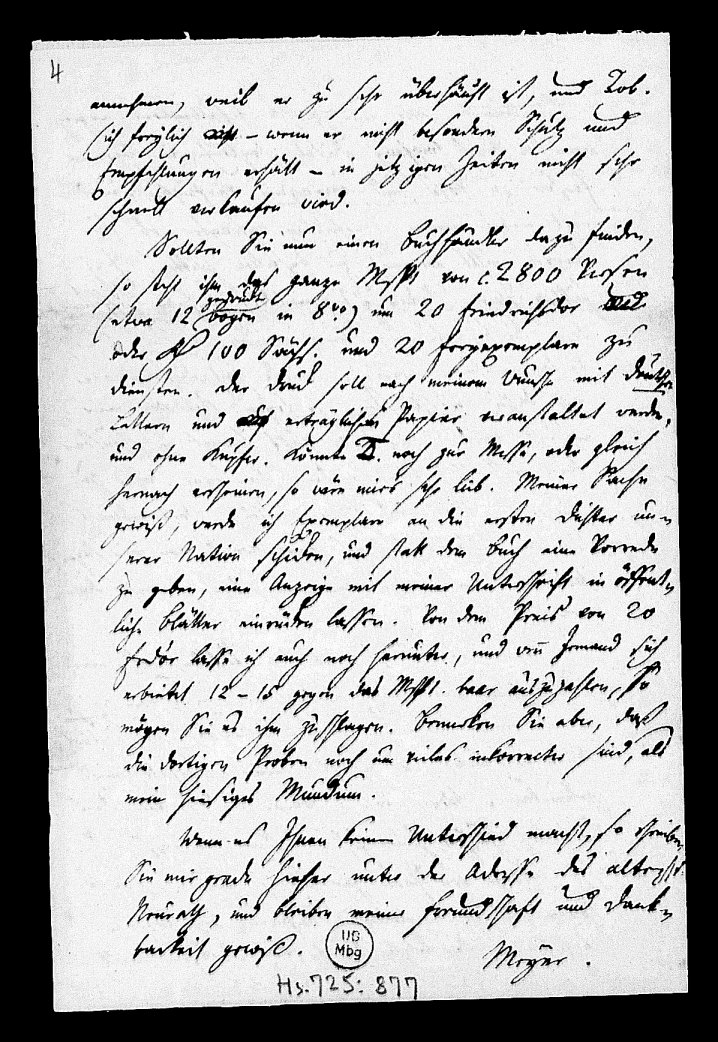 4
annehmen, weil er zu sehr überhäuft ist, und Tob.
sich freylich – wenn er nicht besondern Schutz und
Empfehlungen erhält – in jetzigen Zeiten nicht sehr
schnell verkaufen wird.
Sollten Sie nun einen Buchhändler dazu finden,
so steht ihm das ganze Mspt von c. 2800 Versen
gedruckte
(etwa 12 bogen in 8vo) um 20 Friedrichsdor
oder 100 Sächs. und 20 Freyexemplare zu
diensten. Der Druck soll nach meinem Wunsche mit deutschen
Lettern und auf erträglichem Papier veranstaltet werden,
und ohne Kupfer. Könnte T. noch zur Messe, oder gleich
hernach erscheinen, so wäre mirs sehr lieb. Meiner Sache
gewiß, werde ich Exemplare an die ersten Dichter un-
serer Nation schicken, und statt dem Buch eine Vorrede
zu geben, eine Anzeige mit meiner Unterschrift in öffent-
liche Blätter einrücken lassen. Von dem Preis von 20
Frdor lasse ich auch noch herunter, und wenn Jemand sich
erbietet 12 – 15 gegen das Mspt. baar auszuzahlen, so
mögen Sie es ihm zuschlagen. Bemerken Sie aber, daß
die dortigen Proben noch um vieles inkorrecter sind, als
mein hiesiges Mundum.
Wenn es Ihnen keinen Unterschied macht, so schreiben
Sie mir grade hieher unter der Adresse des
Neurath, und bleiben meiner Freundschaft und Dank-
barkeit gewiß.
Meyer.
UB
Mbg
Hs. 725: 877